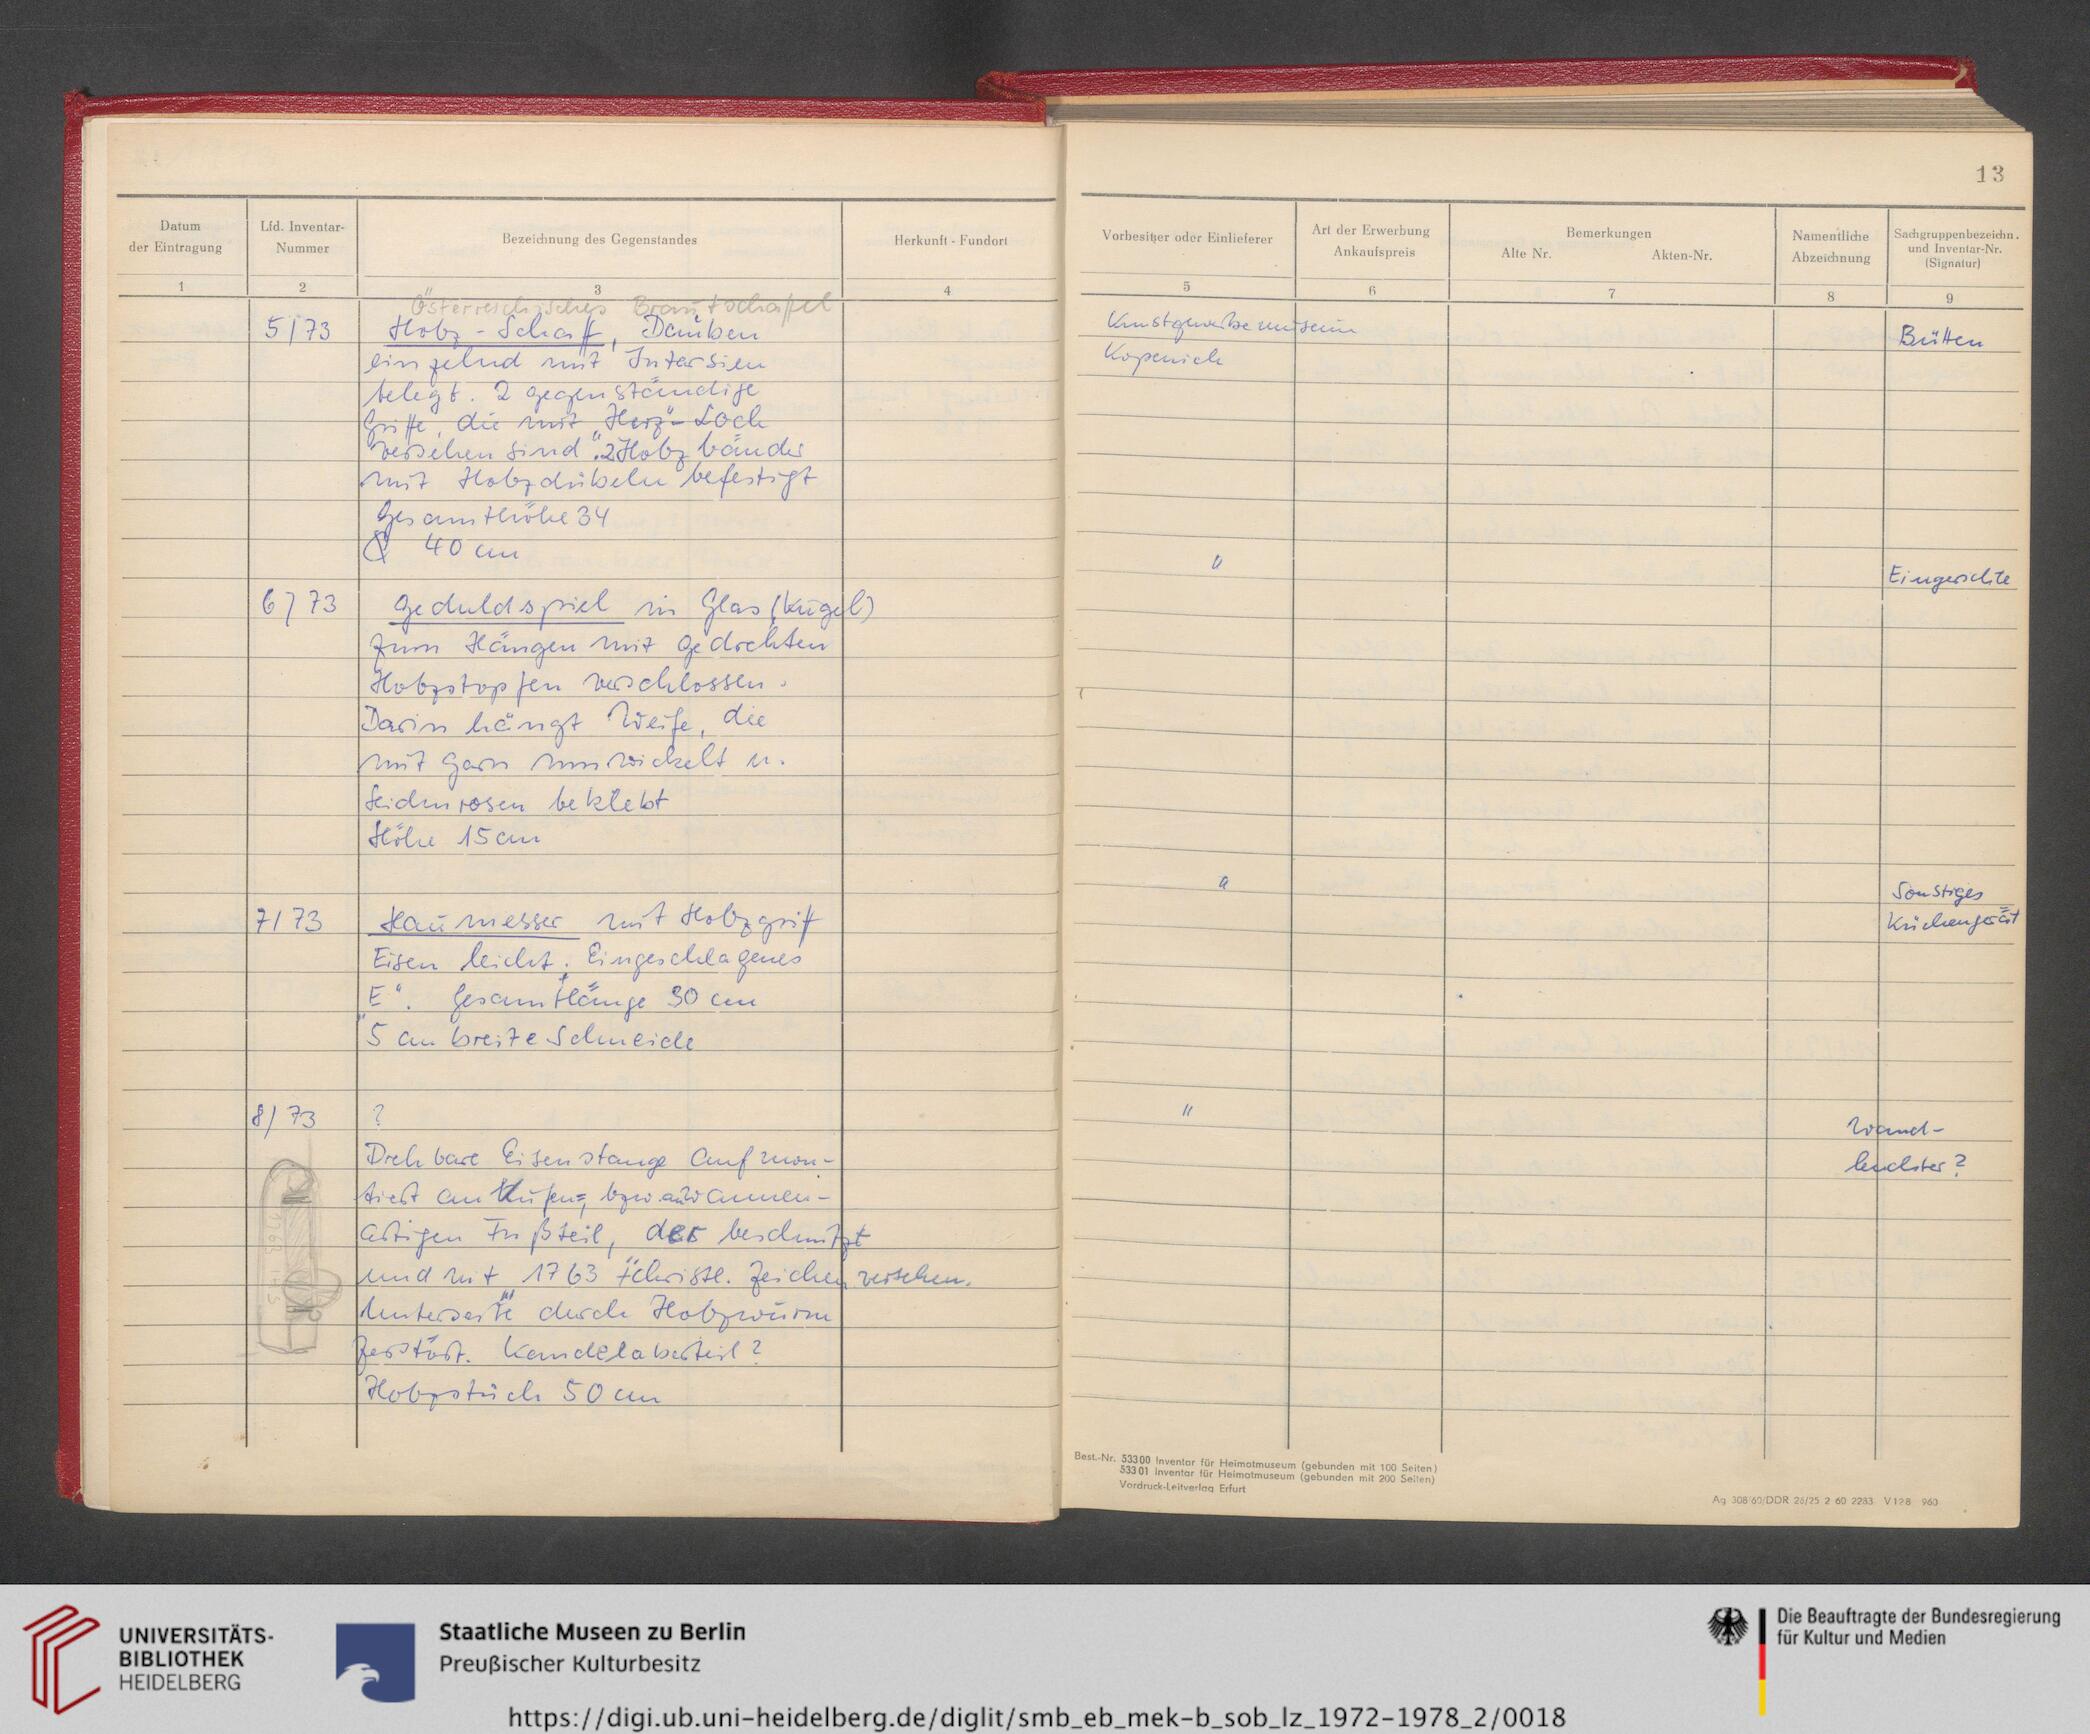 13
Datum
der Eintragung
Lfd. Inventar-
Nummer
Bezeichnung des Gegenstandes
Herkunft - Fundort
Vorbesitzer oder Einlieferer
Art der Erwerbung
Ankaufspreis
Bemerkungen
Alte Nr. Akten-Nr.
Namentliche
Abzeichnung
Sachgruppenbezeichn.
und Inventar-Nr.
(Signatur)
1 2 3 4 5 6 7 8 9
Österreichisches Brautschaffel
5/73 Holz-Schaff, Dauben
einzelnd mit Intarsien
belegt. 2 gegenständige
Griffe, die mit „Herz"-Loch
versehen sind. 2 Holzbänder
mit Holzdübeln befestigt
Gesamthöhe 34
40 cm
Kunstgewerbemuseum
Köpenick
Bütten
6/73 Geduldspiel in Glas (Kugel)
zum Hängen mit gedrehten
Holzstopfen verschlossen.
Darin hängt Weife, die
mit Garn umwickelt u.
Seidenrosen beklebt
Höhe 15 cm
"
Eingerichte
7/73 Haumesser mit Holzgriff
Eisen leicht. Eingeschlagenes
„E". Gesamtlänge 30 cm
5 cm breite Schneide
"
Sonstiges
Küchengerät
8/73 ?
Drehbare Eisenstange auf mon-
tiert an Kufen=, bzw. wannen-
artigen Fußteil, der beschnitzt
und mit 1763 + christl. Zeichen versehen.
Unterseite durch Holzwurm
zerstört. Kandelaberteil?
Holzstück 50 cm
"
Wand-
leuchter?
Best.-Nr. 53300 Inventar für Heimatmuseum (gebunden mit 100 Seiten)
53301 Inventar für Heimatmuseum (gebunden mit 200 Seiten)
Vordruck-Leitverlag Erfurt
Ag 308/60/DDR 26/25 2 60 2283 V128 960
UNIVERSITÄTS-
BIBLIOTHEK
HEIDELBERG
Staatliche Museen zu Berlin
Preußischer Kulturbesitz
Die Beauftragte der Bundesregierung
für Kultur und Medien
https://digi.ub.uni-heidelberg.de/diglit/smb_eb_mek-b_sob_lz_1972-1978_2/0018